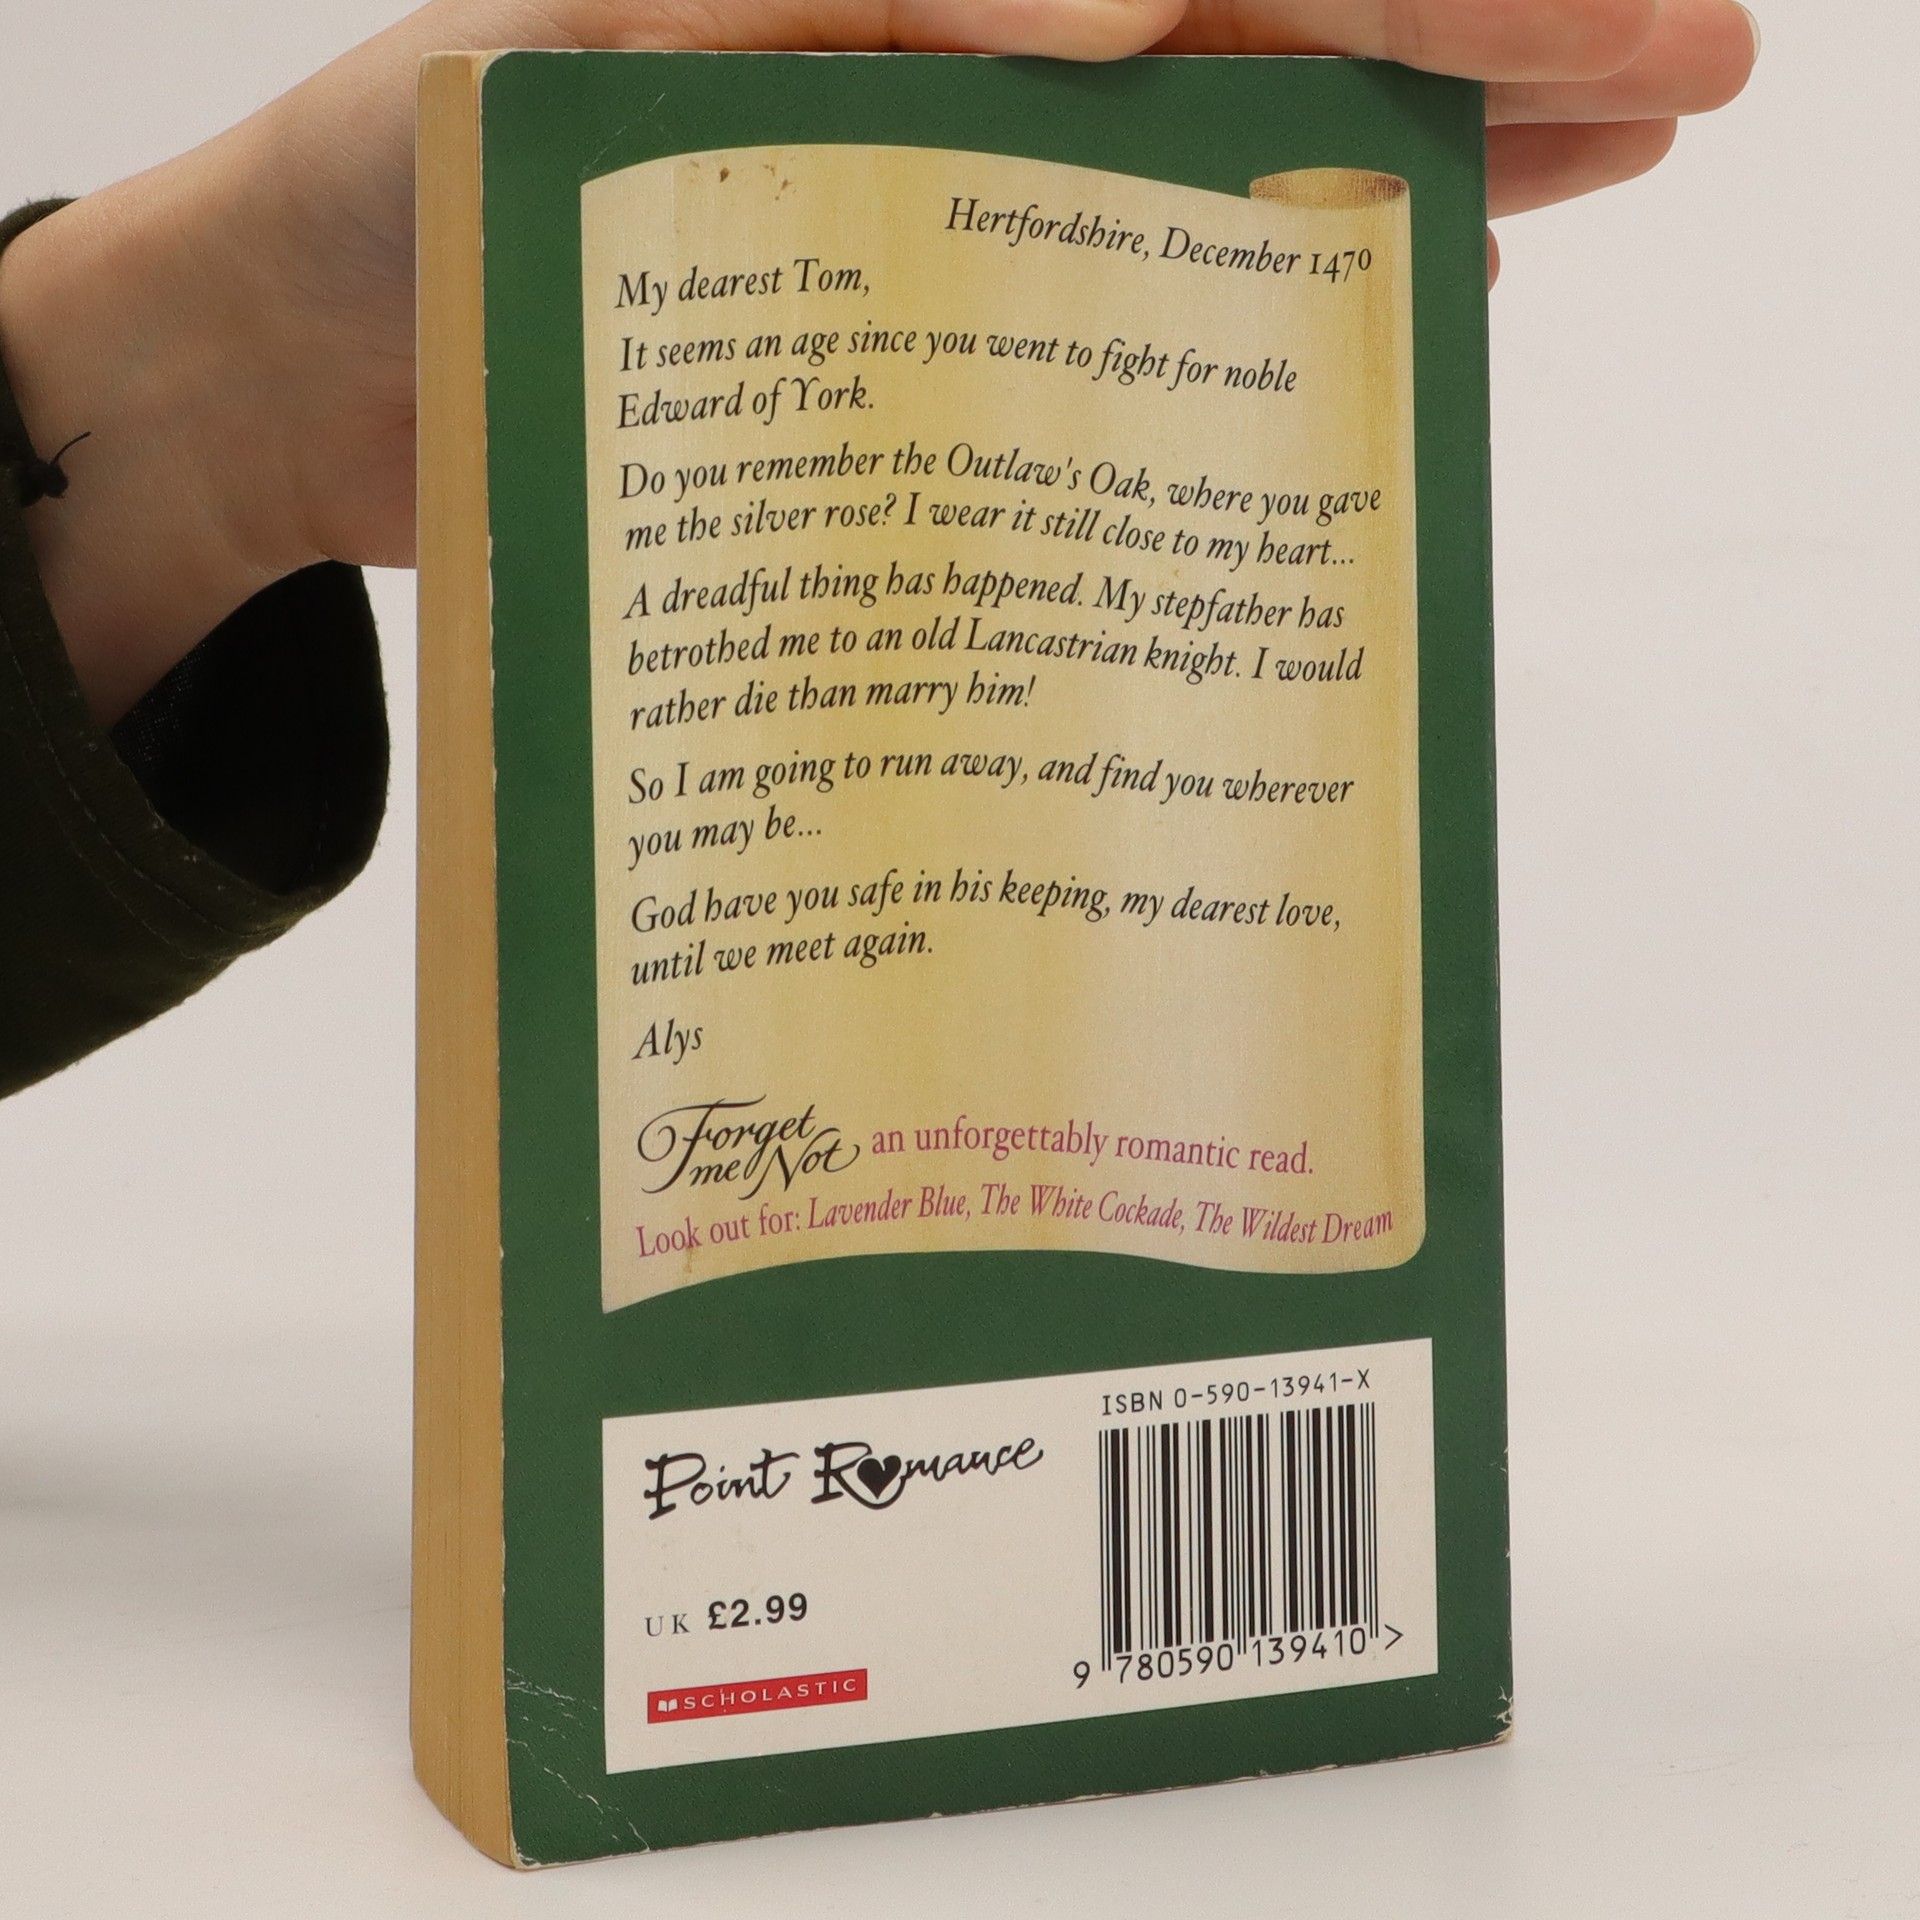 Hertfordshire, December 1470
My dearest Tom,
It seems an age since you went to fight for noble
Edward of York.
Do you remember the Outlaw's Oak, where you gave
me the silver rose? I wear it still close to my heart...
A dreadful thing has happened. My stepfather has
betrothed me to an old Lancastrian knight. I would
rather die than marry him!
So I am going to run away, and find you wherever
you may be...
God have you safe in his keeping, my dearest love,
until we meet again.
Alys
Forget me Not an unforgettably romantic read.
Look out for: Lavender Blue, The White Cockade, The Wildest Dream
ISBN 0-590-13941-X
Point Romance
UK £2.99
9 780590 139410 >
SCHOLASTIC